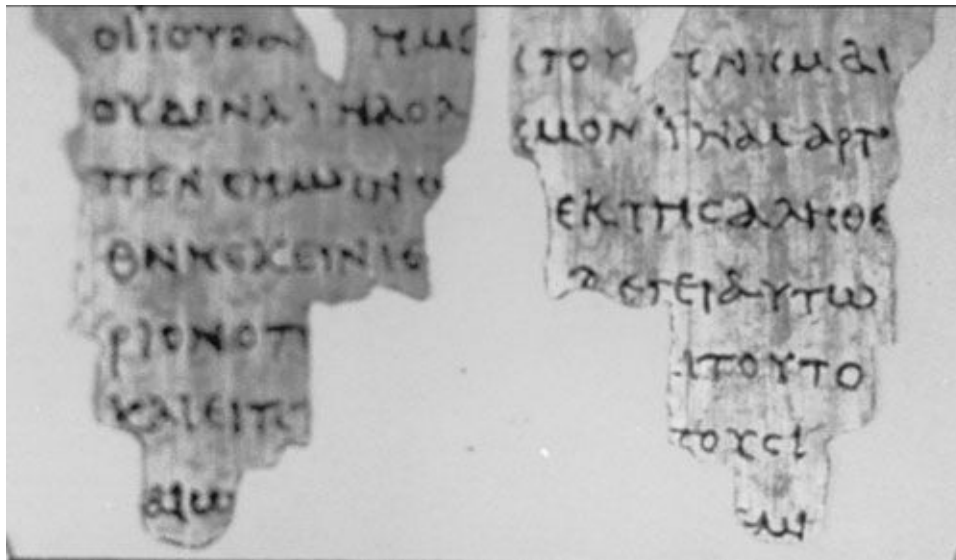 οιϊουδαι ημε
ουδεναϊναολο
πενσημαινω
θνησκεινισ
ριονοπ
καιειπ
αιω
τουτ νημαι
σμονϊναμαρτυ
εκτησαληθε
λεγειαυτω
ιτουτο
τουσι
μι